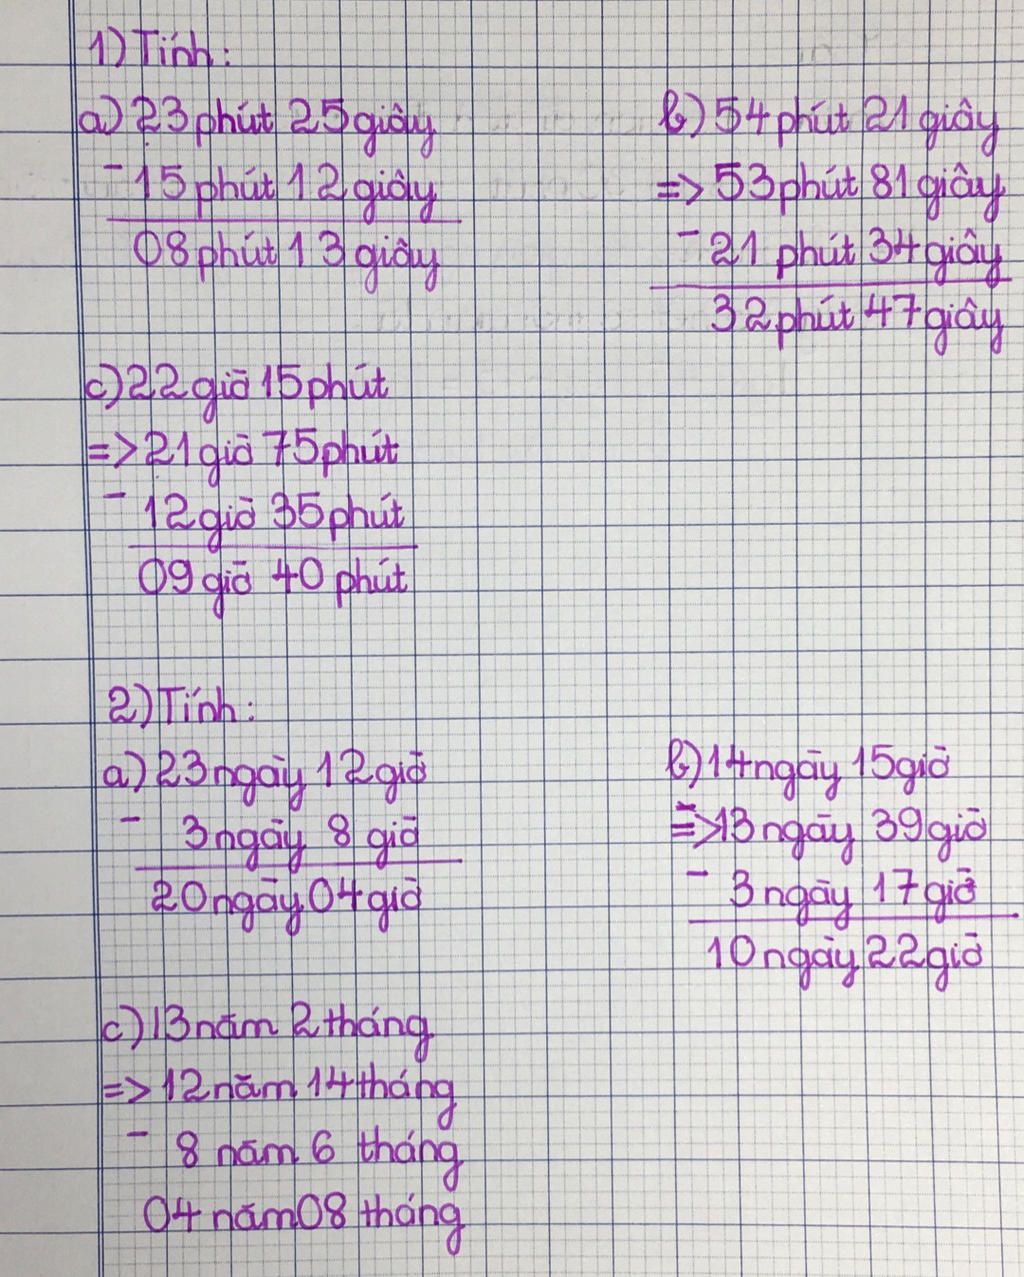 1) Tính:
a) 23 phút 25 giây
- 15 phút 12 giây
08 phút 13 giây
b) 54 phút 21 giây
=> 53 phút 81 giây
- 21 phút 34 giây
32 phút 47 giây
c) 22 giờ 15 phút
=> 21 giờ 75 phút
- 12 giờ 35 phút
09 giờ 40 phút
2) Tính:
a) 23 ngày 12 giờ
- 3 ngày 8 giờ
20 ngày 04 giờ
b) 14 ngày 15 giờ
=> 13 ngày 39 giờ
- 3 ngày 17 giờ
10 ngày 22 giờ
c) 13 năm 2 tháng
=> 12 năm 14 tháng
- 8 năm 6 tháng
04 năm 08 tháng